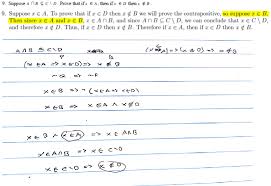 9. Suppose A ∩ B ⊆ C \ D. Prove that if x ∈ A, then if x ∈ D then x ∉ B.
9. Suppose x ∈ A. To prove that if x ∈ D then x ∉ B we will prove the contrapositive, so suppose x ∈ B.
Then since x ∈ A and x ∈ B, x ∈ A ∩ B, and since A ∩ B ⊆ C \ D, we can conclude that x ∈ C \ D,
and therefore x ∉ D. Thus, if x ∈ D then x ∉ B. Therefore if x ∈ A, then if x ∈ D then x ∉ B.
A∩B ⊆ C\D
x ∈ B ⇒
x ∈ B ⇒
x ∈ B x ∈ A ⇒ x ∈ A∩B
x ∈ A∩B ⇒ x ∈ C\D
x ∈ C\D ⇒ x ∉ D